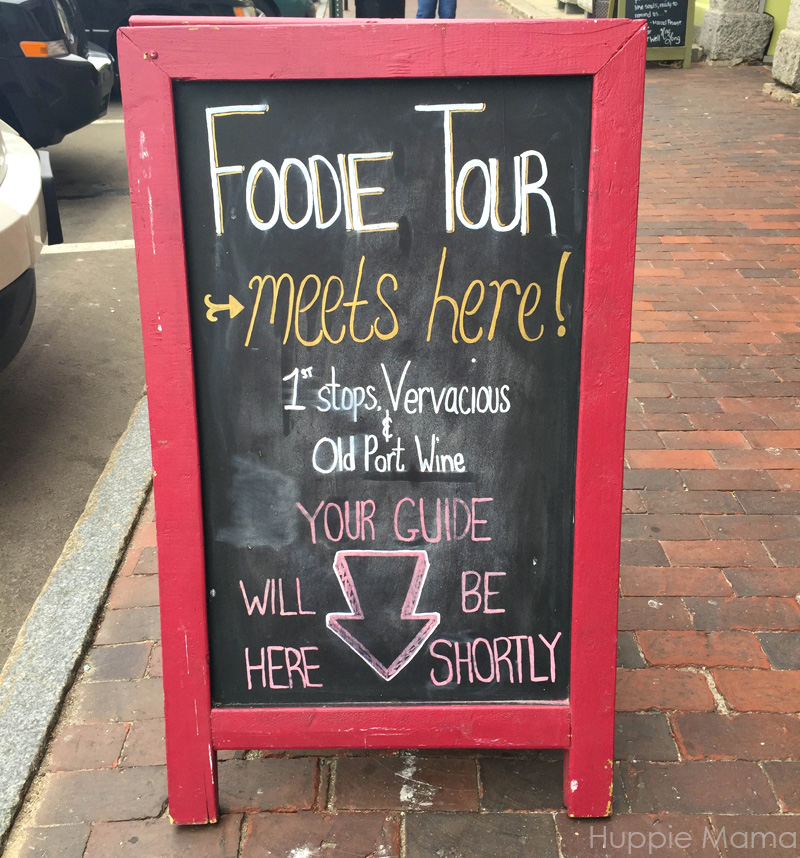 FOODIE TOUR
meets here!
1ST stops. Vervacious
&
Old Port Wine
YOUR GUIDE
WILL BE
HERE SHORTLY
Huppie Mama